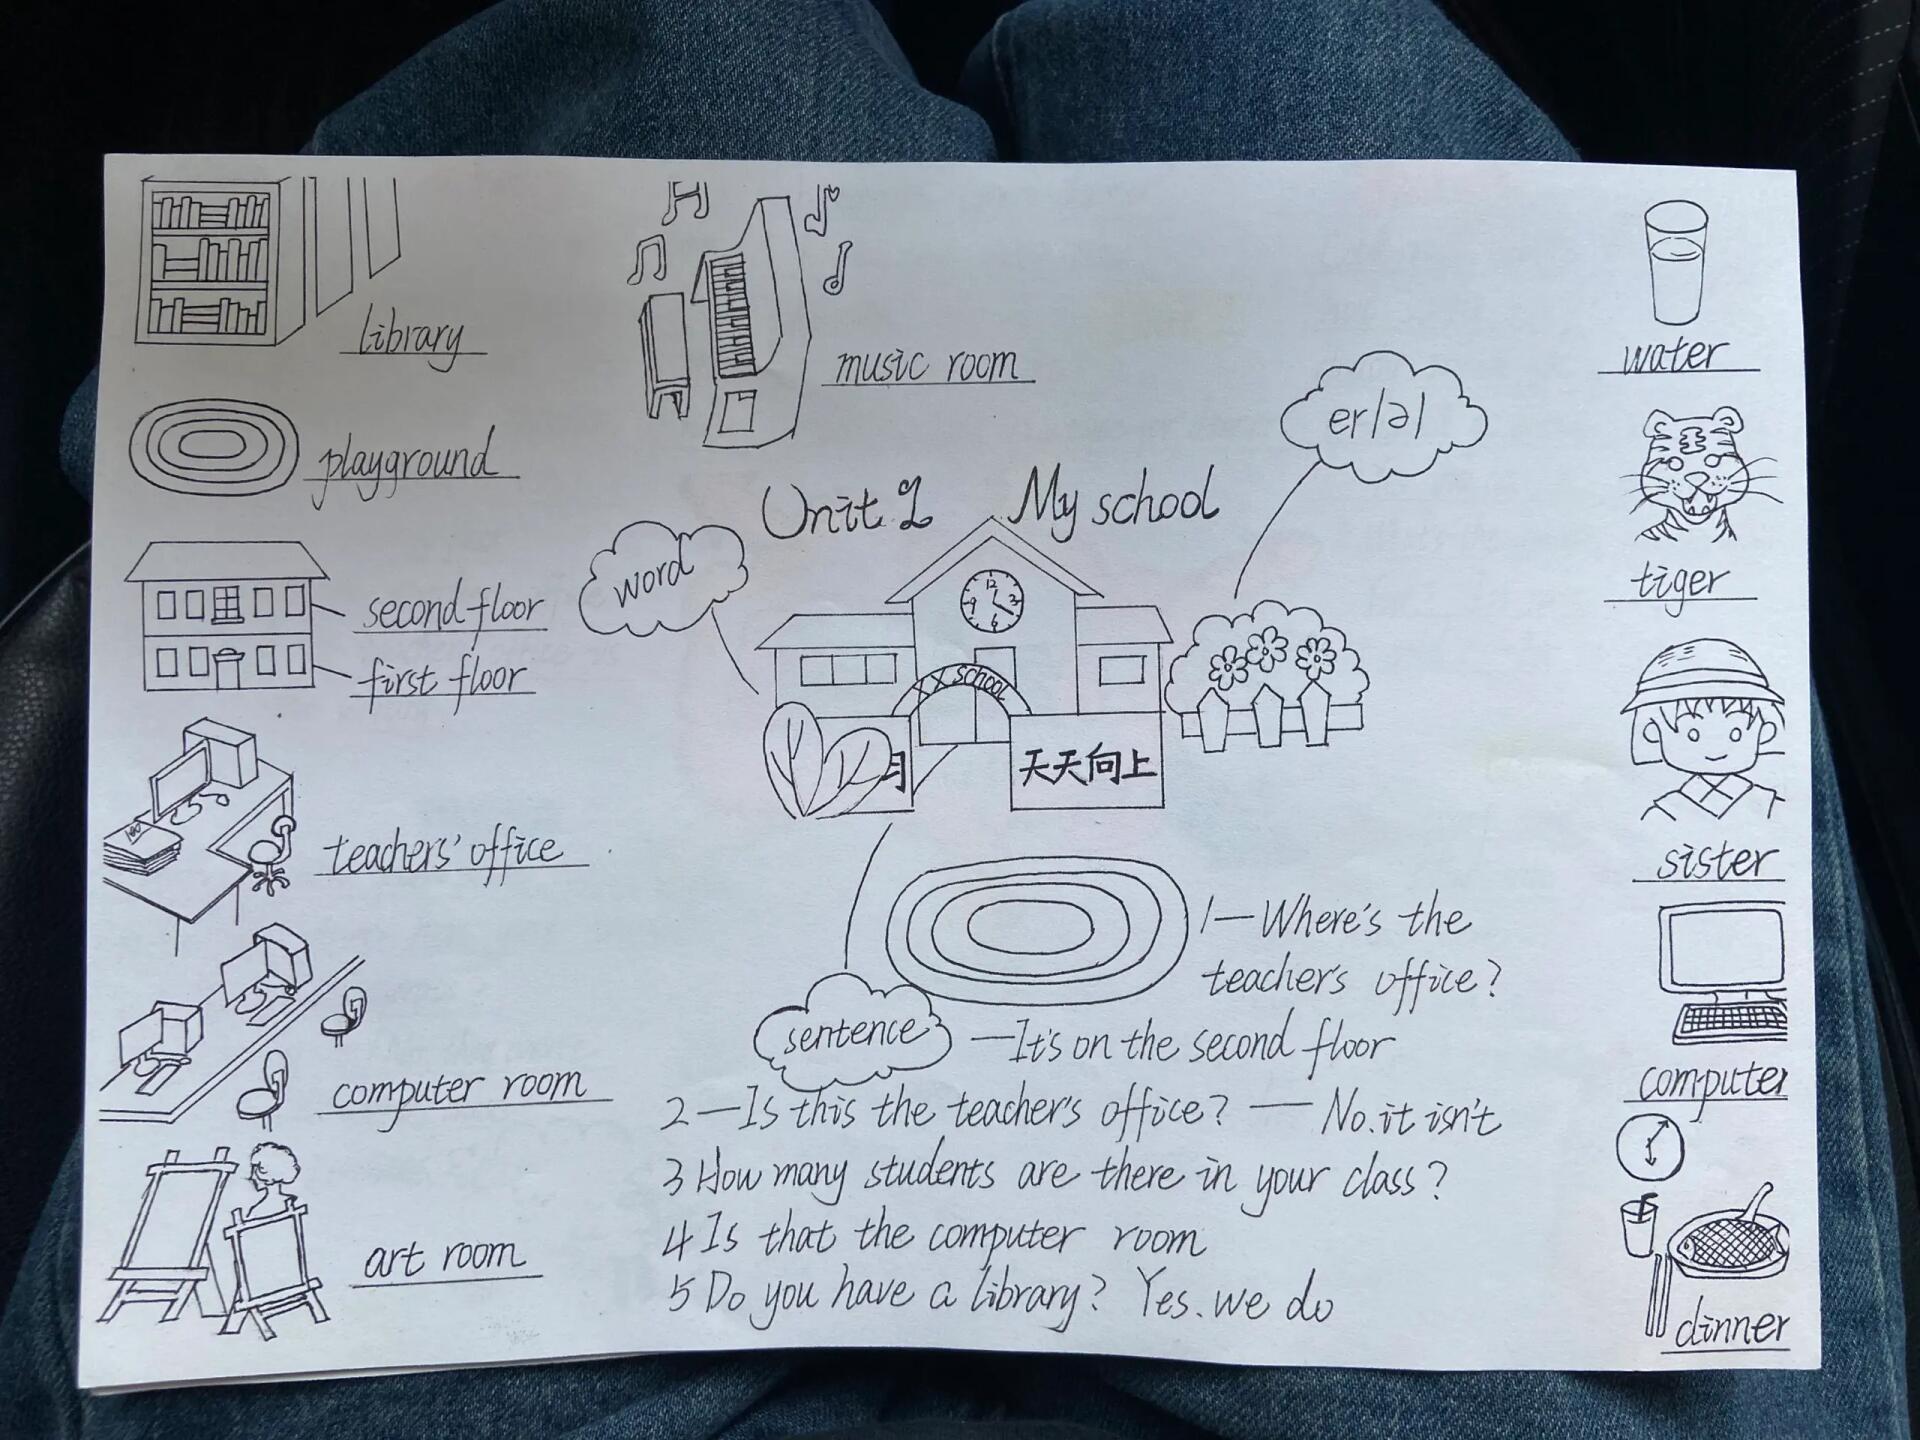 library
music room
water
er/ə/
playground
Unit 2 My school
word
second floor
first floor
tiger
12
3
6
9
XX school
习
天天向上
teachers' office
sister
1—Where's the
teacher's office?
sentence
—It's on the second floor
computer room
computer
2—Is this the teacher's office? — No.it isn't
3 How many students are there in your class?
4 Is that the computer room
art room
5 Do you have a library? Yes.we do
dinner